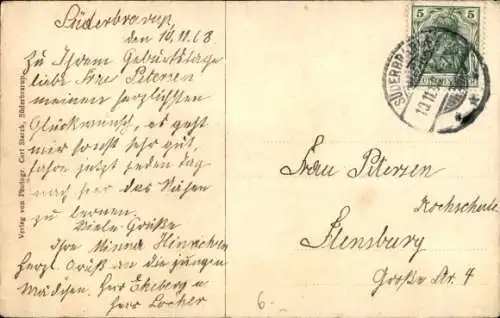 Süderbrarup,
den 10.11.08.
Zu Ihrem Geburtstage
liebe Frau Petersen
meinen herzlichsten
Glückwunsch, es geht
mir sonst sehr gut,
fahre jetzt jeden Tag
nach hier das Nähen
zu lernen.
Viele Grüße
Ihre Minna Hinrichsen
Herzl. Grüß an die jungen
Mädchen. Herr Ekeberg u
Herr Locher
Verlag von Photogr. Carl Starck, Süderbrarup.
5 5
SÜDERBRARUP
10.11.
Frau Petersen
Kochschule
Flensburg
Große Str. 4
6.